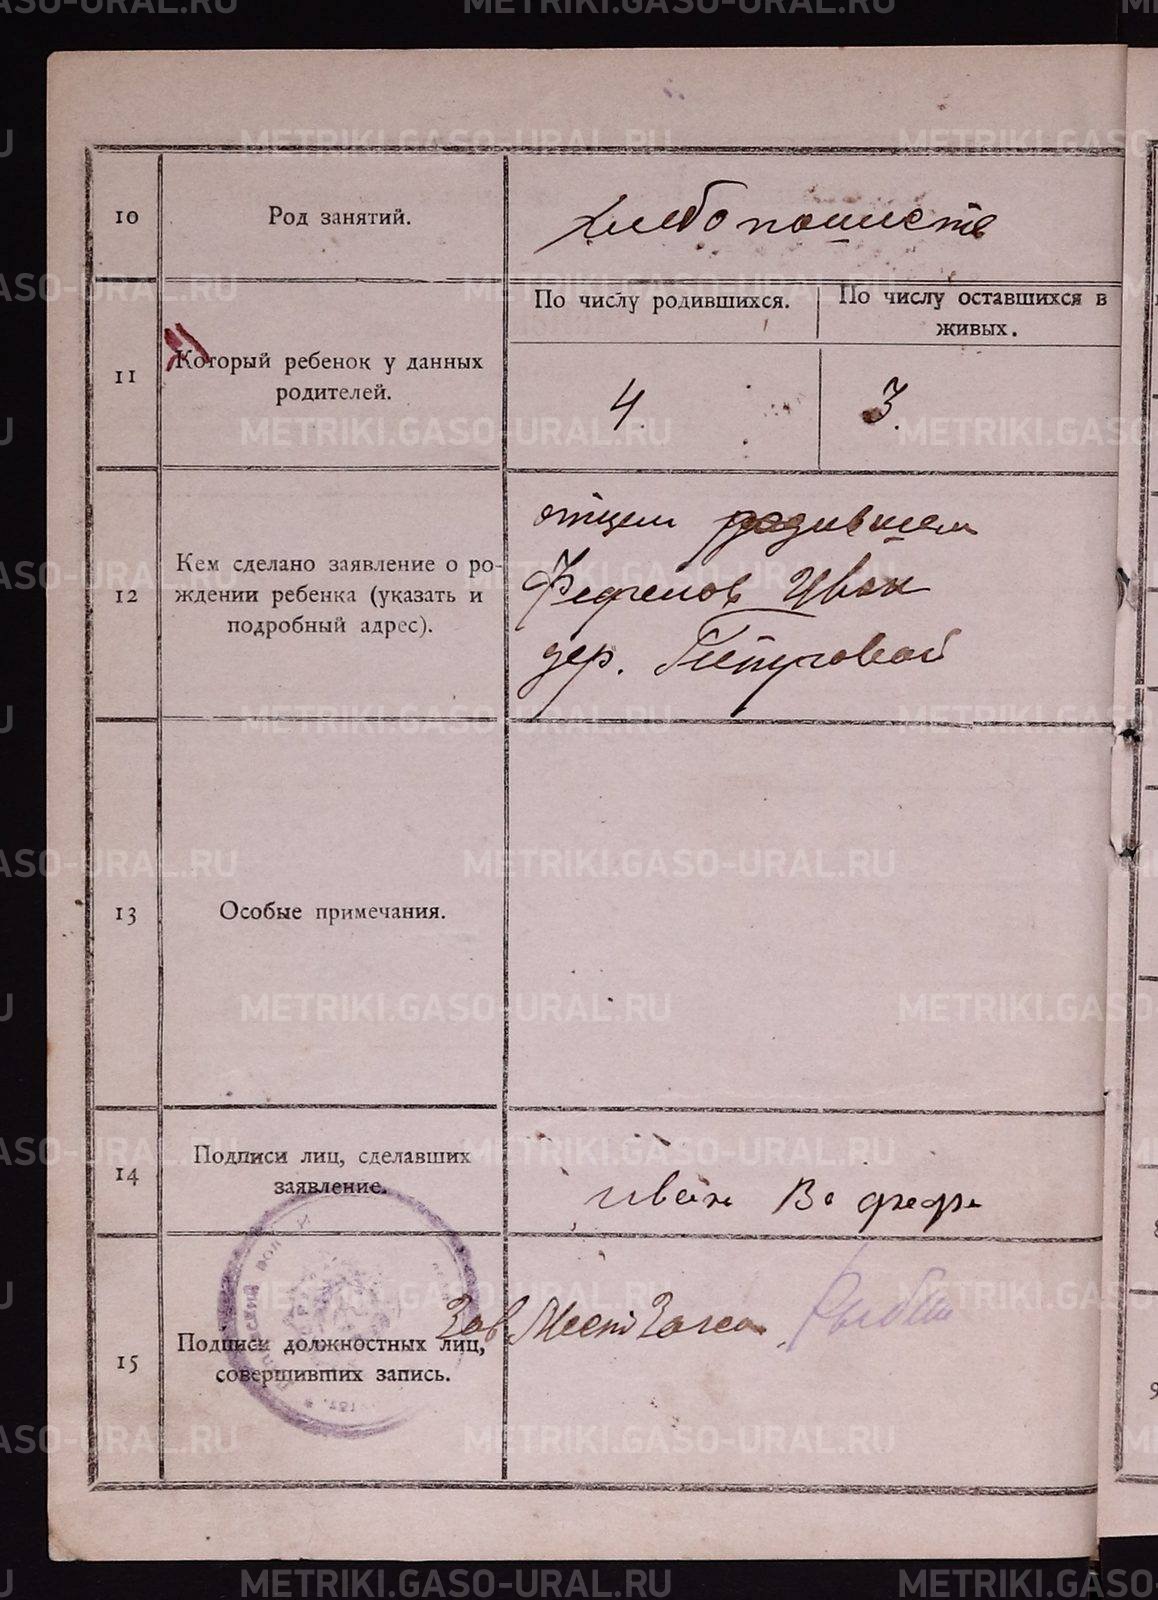 10
Род занятий.
хлебопашеств
11
Который ребенок у данных
родителей.
По числу родившихся.
По числу оставшихся в
живых.
4
3.
12
Кем сделано заявление о ро-
ждении ребенка (указать и
подробный адрес).
отцем
Фефелов Иван
дер.
13
Особые примечания.
14
Подписи лиц, сделавших
заявление.
иван
15
Подписи должностных лиц,
совершивших запись.
Зав
METRIKI.GASO-URAL.RU